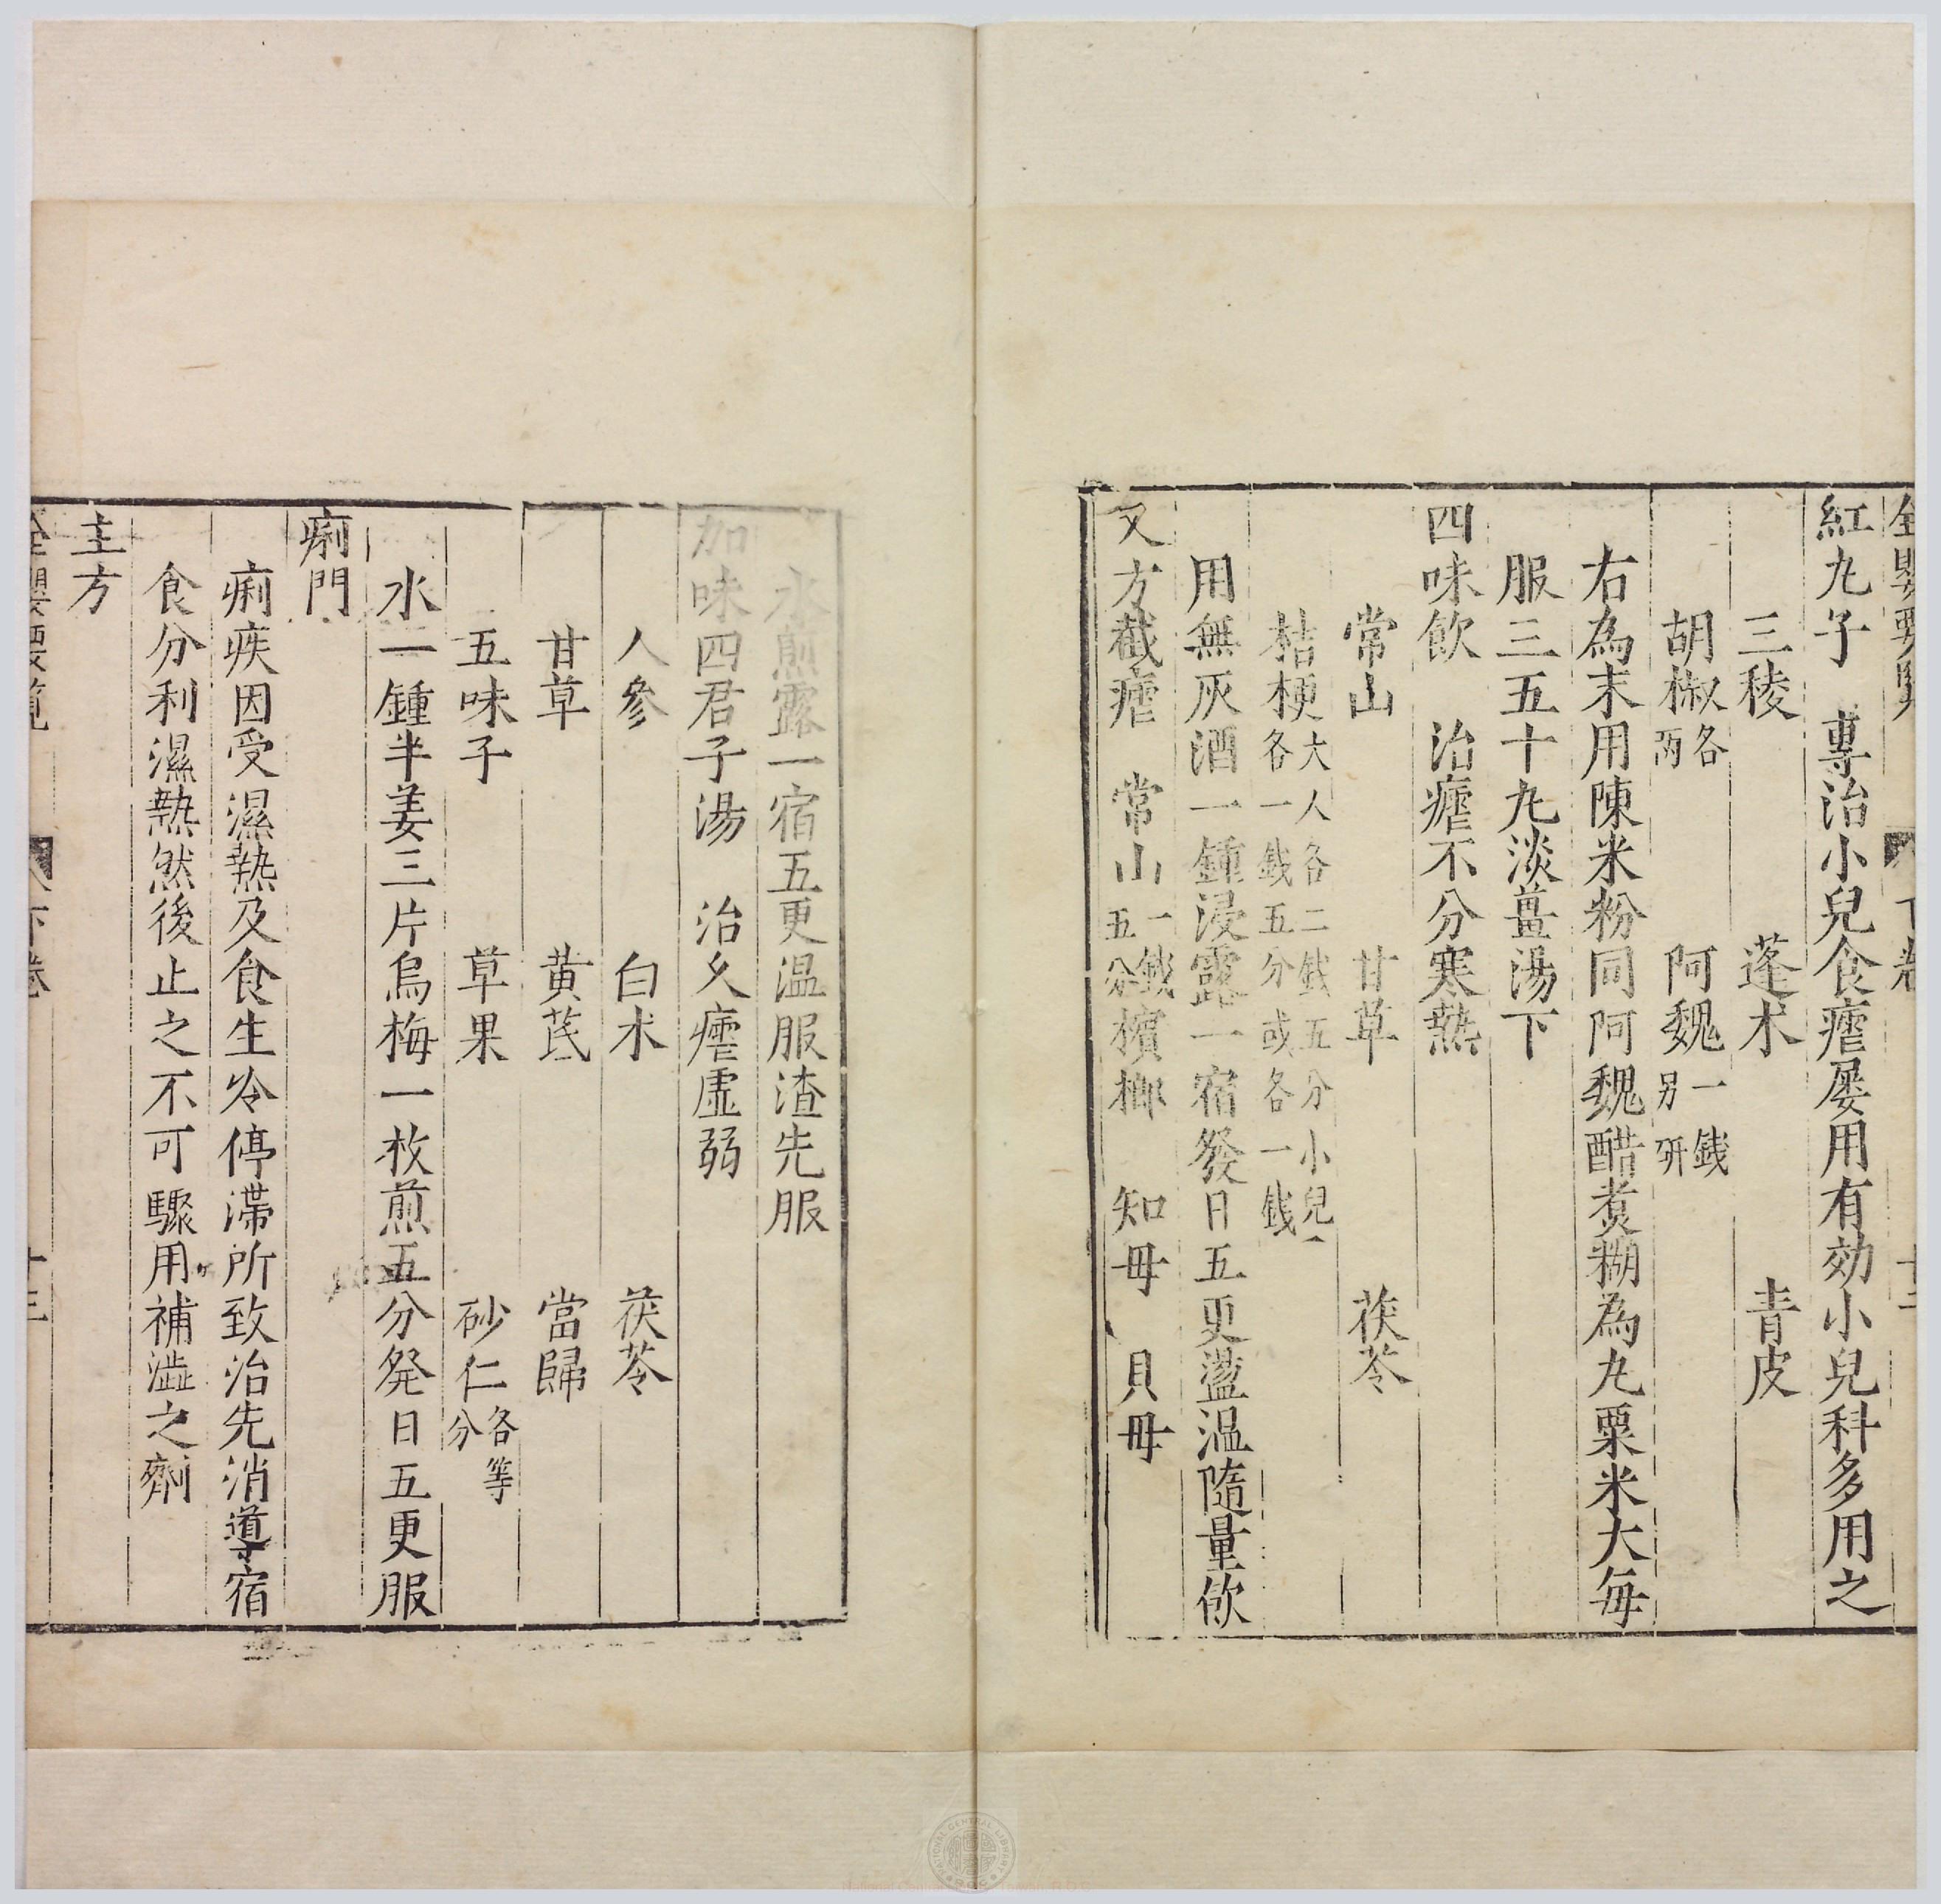 紅丸子　專治小兒食瘧屡用有効小兒科多用之
三稜　蓬朮　青皮
胡椒各両　阿魏一錢另研
右為末用陳米粉同阿魏醋煮糊為丸粟米大每
服三五十丸淡薑湯下
四味飲　治瘧不分寒熱
常山　甘草　茯苓
桔梗大人各二錢五分小兒一各一錢五分或各一錢
用無灰酒一鍾浸露一宿發日五更盪温隨量飲
又方截瘧　常山一錢五分檳榔　知母　貝母
水煎露一宿五更温服渣先服
加味四君子湯　治久瘧虛弱
人參　白朮　茯苓
甘草　黄芪　當歸
五味子　草果　砂仁各等分
水一鍾半姜三片烏梅一枚煎五分発日五更服
痢門
痢疾因受濕熱及食生冷停滯所致治先消導宿
食分利濕熱然後止之不可驟用補澁之劑
主方